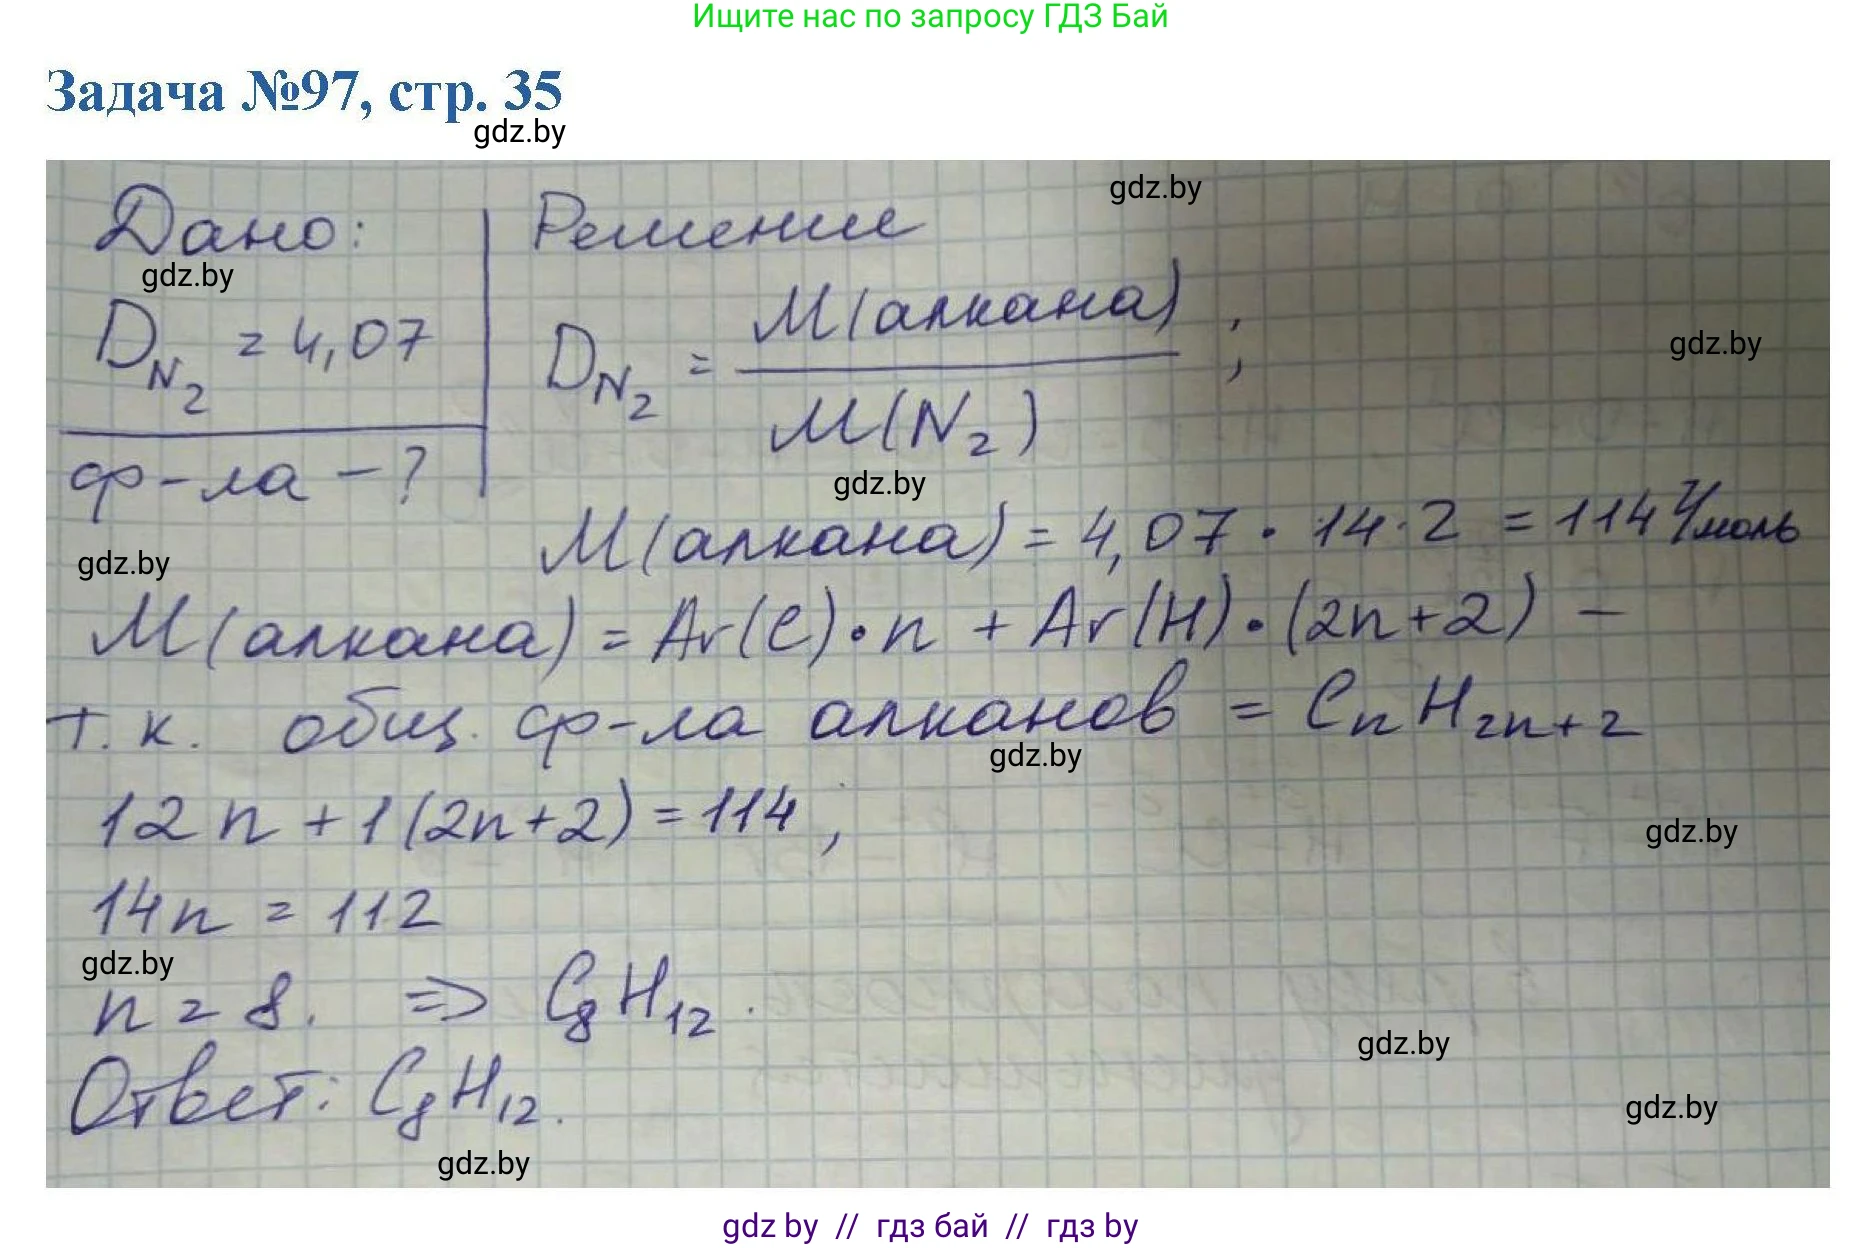 Ищите нас по запросу ГДЗ Бай
Задача №97, стр. 35
gdz.by
gdz.by
Дано:
gdz.by
D N₂ = 4,07
ф-ла – ?
gdz.by
Решение
D N₂ = М(алкана) / М(N₂) ;
gdz.by
gdz.by
М(алкана) = 4,07 · 14 · 2 = 114 г/моль
М(алкана) = Ar(C) · n + Ar(H) · (2n+2) –
т.к. общ. ф-ла алканов = CnH2n+2
gdz.by
12n + 1(2n+2) = 114 ;
gdz.by
14n = 112
gdz.by
n = 8. ⇒ C₈H₁₂.
gdz.by
Ответ: C₈H₁₂.
gdz.by
gdz.by
gdz by // гдз бай // гдз by